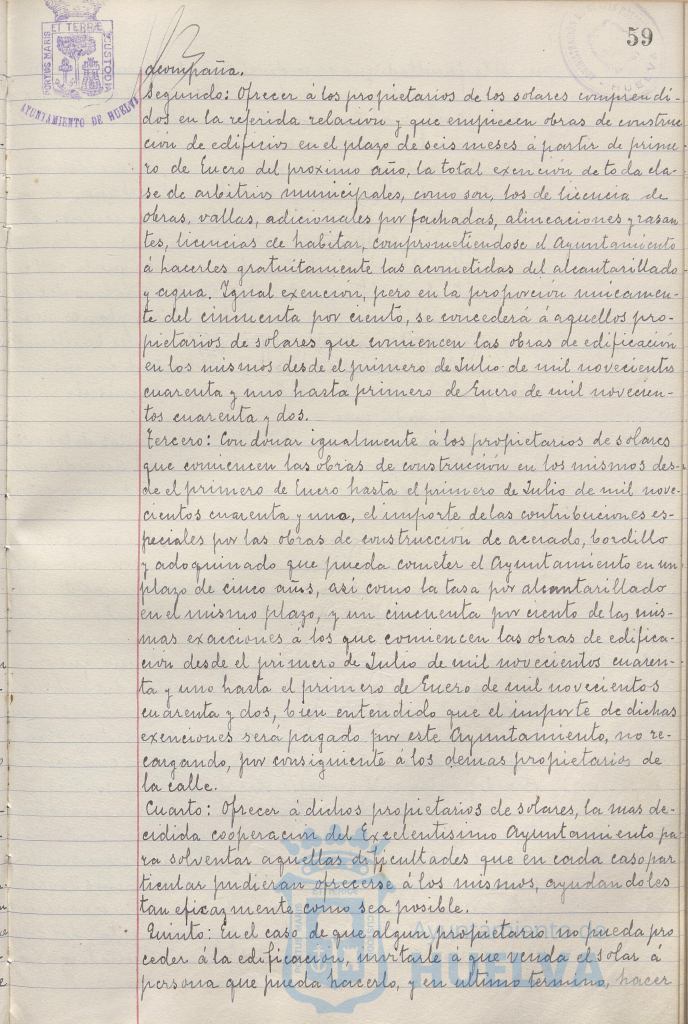 PORTUS MARIS ET TERRÆ CUSTODIA
AYUNTAMIENTO DE HUELVA
59
acompaña.
Segundo: Ofrecer á los propietarios de los solares comprendi-
dos en la referida relación y que empiecen obras de construc-
ción de edificios en el plazo de seis meses á partir de prime-
ro de Enero del proximo año, la total exención de toda cla-
se de arbitrios municipales, como son, los de licencia de
obras, vallas, adicionales por fachadas, alineaciones y rasan-
tes, licencias de habitar, comprometiendose el Ayuntamiento
á hacerles gratuitamente las acometidas del alcantarillado
y agua. Igual exención, pero en la proporción unicamen-
te del cincuenta por ciento, se concederá á aquellos pro-
pietarios de solares que comiencen las obras de edificación
en los mismos desde el primero de Julio de mil novecientos
cuarenta y uno hasta primero de Enero de mil novecien-
tos cuarenta y dos.
Tercero: Condonar igualmente á los propietarios de solares
que comiencen las obras de construcción en los mismos des-
de el primero de Enero hasta el primero de Julio de mil nove-
cientos cuarenta y uno, el importe de las contribuciones es-
peciales por las obras de construcción de acerado, bordillo
y adoquinado que pueda cometer el Ayuntamiento en un
plazo de cinco años, así como la tasa por alcantarillado
en el mismo plazo, y un cincuenta por ciento de las mis-
mas exacciones á los que comiencen las obras de edifica-
ción desde el primero de Julio de mil novecientos cuaren-
ta y uno hasta el primero de Enero de mil novecientos
cuarenta y dos, bien entendido que el importe de dichas
exenciones será pagado por este Ayuntamiento, no re-
cargando, por consiguiente á los demas propietarios de
la calle.
Cuarto: Ofrecer á dichos propietarios de solares, la mas de-
cidida cooperación del Excelentisimo Ayuntamiento pa-
ra solventar aquellas dificultades que en cada caso par-
ticular pudieran ofrecerse á los mismos, ayudandoles
tan eficazmente como sea posible.
Quinto: En el caso de que algun propietario no pueda pro-
ceder á la edificación, invitarle á que venda el solar á
persona que pueda hacerlo, y en ultimo termino, hacer
Ayuntamiento de
HUELVA